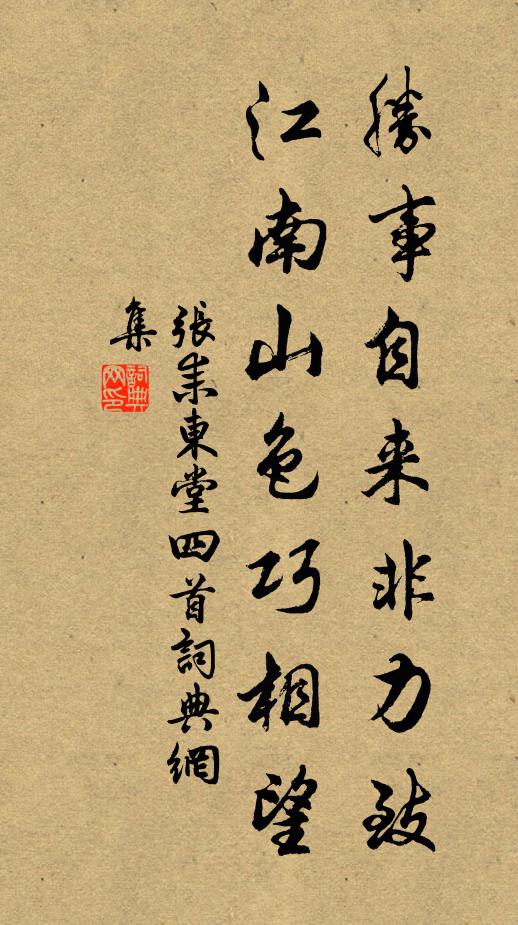 勝事自来非力致
江南山色巧相望
張耒東堂四首詞典網
集
詞典網印